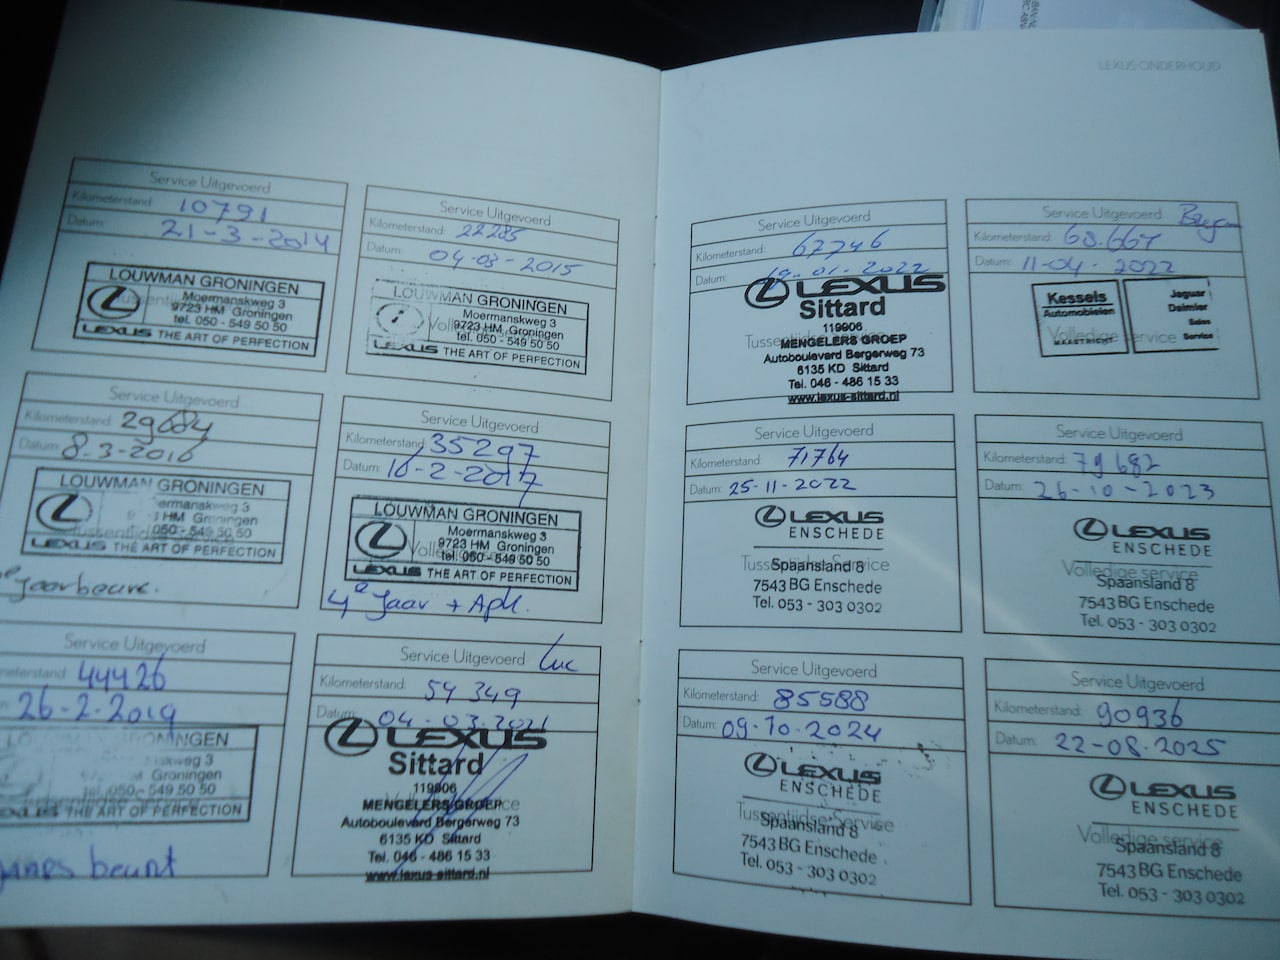 LEXUS ONDERHOUD
Service Uitgevoerd
Kilometerstand: 10791
Datum: 21-3-2014
LOUWMAN GRONINGEN
Moermanskweg 3
9723 HM Groningen
tel. 050 - 549 50 50
LEXUS THE ART OF PERFECTION
Service Uitgevoerd
Kilometerstand: 22285
Datum: 04-03-2015
LOUWMAN GRONINGEN
Volledige
Moermanskweg 3
9723 HM Groningen
tel. 050 - 549 50 50
LEXUS THE ART OF PERFECTION
Service Uitgevoerd
Kilometerstand:
Datum: 8-3-2016
LOUWMAN GRONINGEN
ermanskweg 3
HM Groningen
050 - 549 50 50
Tussentijdse Service
LEXUS THE ART OF PERFECTION
Jaarbeurt.
Service Uitgevoerd
Kilometerstand: 35297
Datum: 16-2-2017
LOUWMAN GRONINGEN
Volledige
Moermanskweg 3
9723 HM Groningen
tel. 050 - 549 50 50
LEXUS THE ART OF PERFECTION
4e Jaar + Apk.
Service Uitgevoerd
meterstand: 44426
26-2-2019
GRONINGEN
skweg 3
Groningen
tel. 050 - 549 50 50
EXUS THE ART OF PERFECTION
beurt
Service Uitgevoerd Luc
Kilometerstand: 54 349
Datum: 04-03-2021
LEXUS
Sittard
119906
MENGELERS GROEP
Autoboulevard Bergerweg 73
6135 KD Sittard
Tel. 046 - 486 15 33
www.lexus-sittard.nl
Service Uitgevoerd
Kilometerstand: 62746
Datum: 19-01-2022
LEXUS
Sittard
119906
MENGELERS GROEP
Autoboulevard Bergerweg 73
6135 KD Sittard
Tel. 046 - 486 15 33
www.lexus-sittard.nl
Service Uitgevoerd
Kilometerstand: 63.667
Datum: 11-04-2022
Kessels
Automobielen
Volledige service
MAASTRICHT
Jaguar
Daimler
Sales
Service
Service Uitgevoerd
Kilometerstand: 71764
Datum: 25-11-2022
LEXUS
ENSCHEDE
Tussentijdse Service
Spaansland 8
7543 BG Enschede
Tel. 053 - 303 0302
Service Uitgevoerd
Kilometerstand: 79682
Datum: 26-10-2023
LEXUS
ENSCHEDE
Volledige service
Spaansland 8
7543 BG Enschede
Tel. 053 - 303 0302
Service Uitgevoerd
Kilometerstand: 85588
Datum: 09-10-2024
LEXUS
ENSCHEDE
Tussentijdse Service
Spaansland 8
7543 BG Enschede
Tel. 053 - 303 0302
Service Uitgevoerd
Kilometerstand: 90936
Datum: 22-08-2025
LEXUS
ENSCHEDE
Volledige service
Spaansland 8
7543 BG Enschede
Tel. 053 - 303 0302